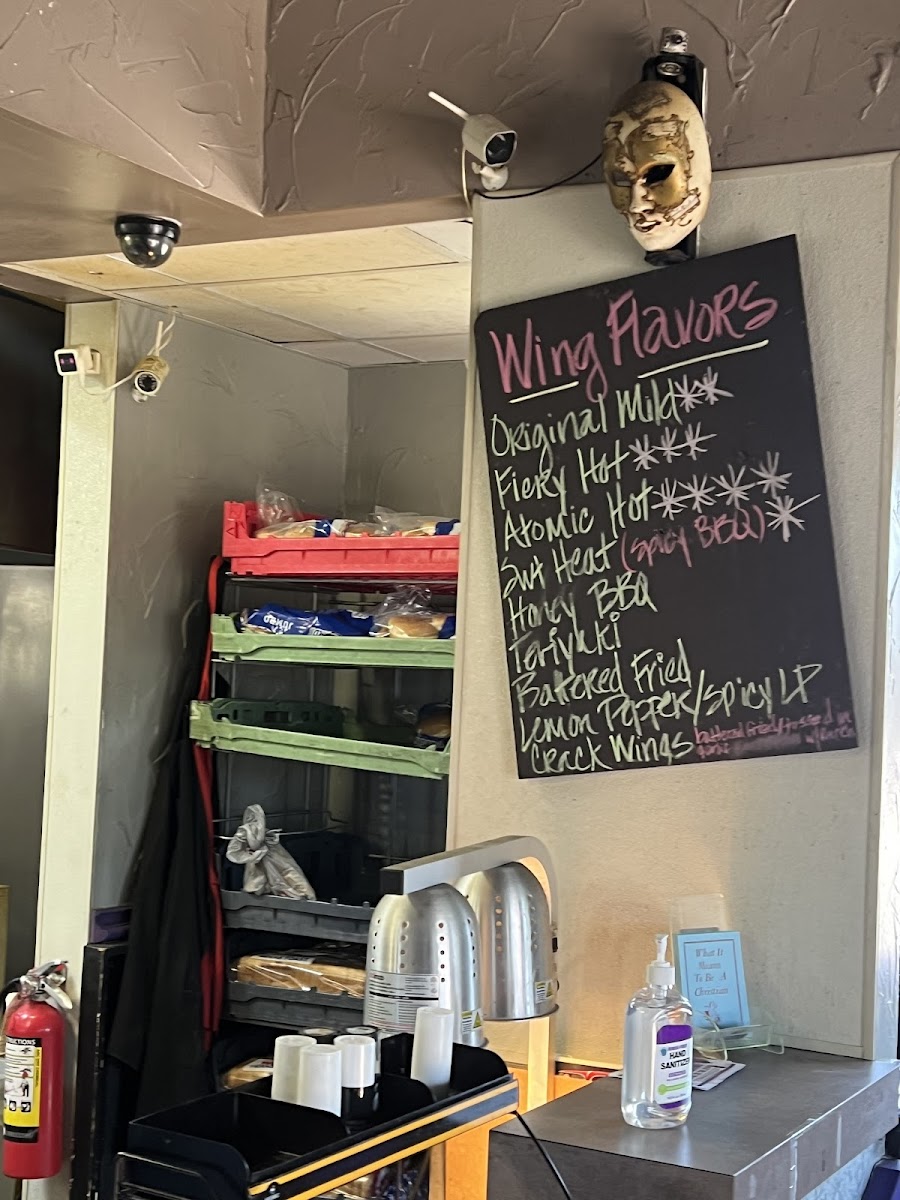 Wing Flavors
Original Mild**
Fiery Hot***
Atomic Hot****
Swt Heat (Spicy BBQ)*
Honey BBQ
Teriyaki
Battered Fried
Lemon Pepper/Spicy LP
Crack Wings battered fried/tossed in
What It
Means
To Be A
Christian
HAND
SANITIZER